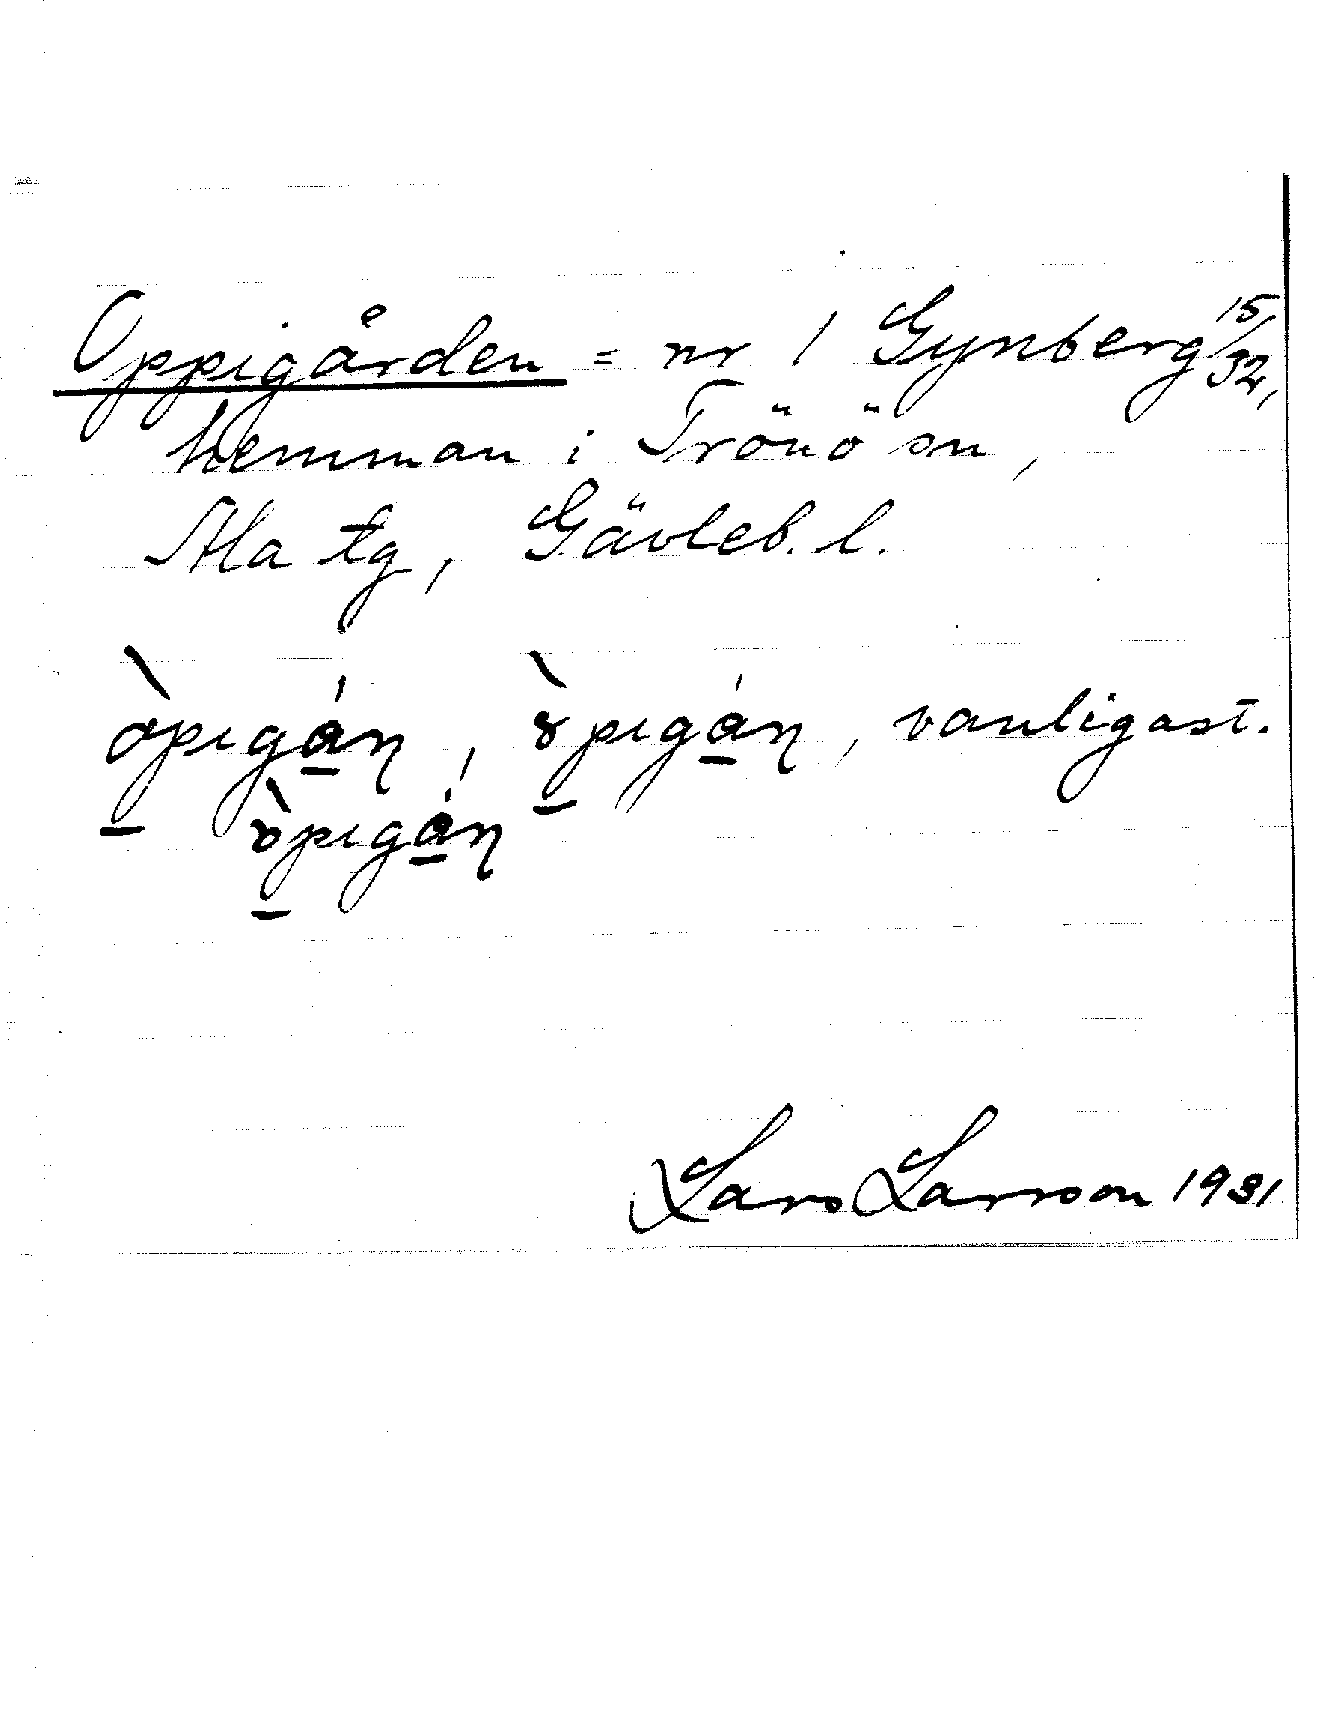 Oppigården = nr 1 Gynberg 15/32,
hemman i Trönö sn,
Ala tg, Gävleb. l.
òpigán, ɤ̀pigán, vanligast.
òpigán
Lars Larsson 1931